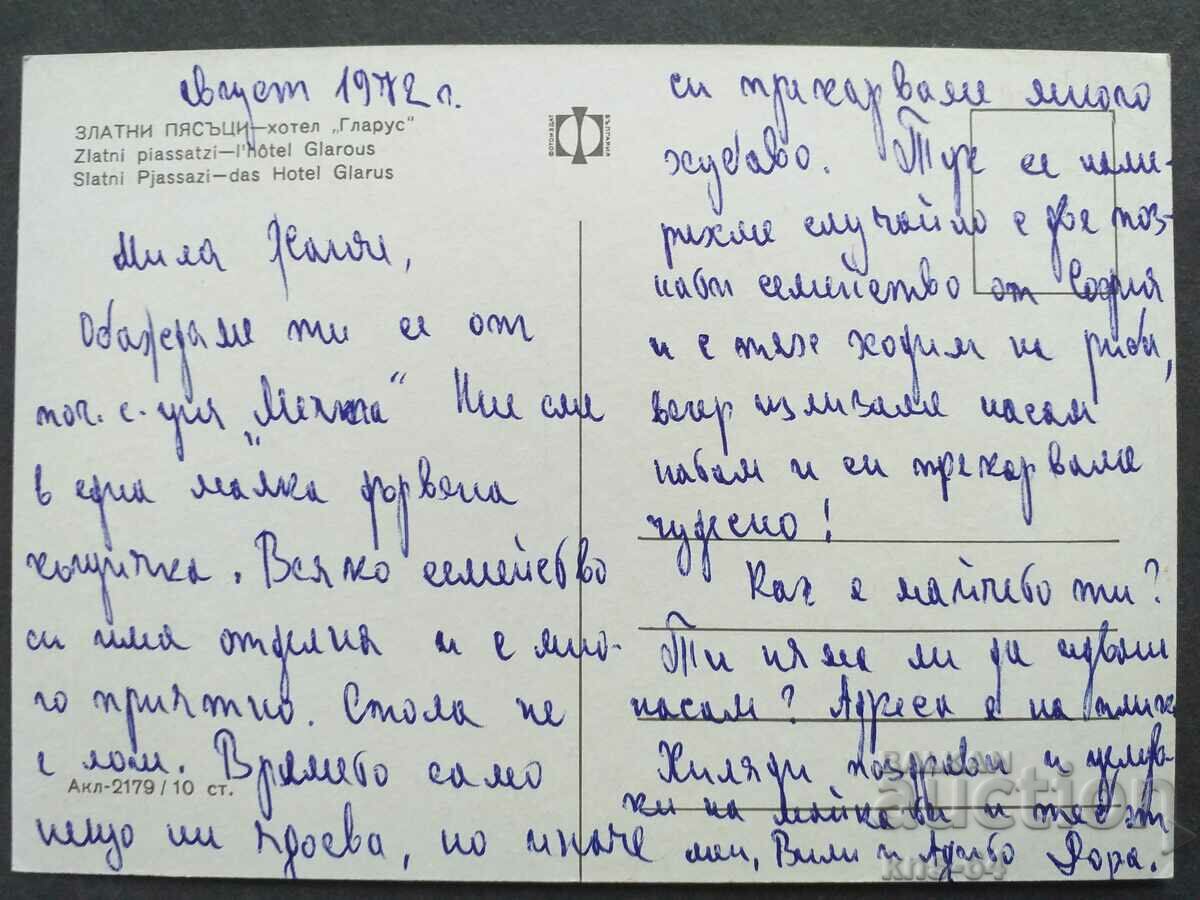 август 1972 г.
ЗЛАТНИ ПЯСЪЦИ—хотел „Гларус“
Zlatni piassatzi—l'hôtel Glarous
Slatni Pjassazi—das Hotel Glarus
ФОТОИЗДАТ
БЪЛГАРИЯ
Мила
Обаждаме ти се от
поч. с-ция „ “ Ние сме
в една малка дървена
къщичка. Всяко семейство
си има отделна и е мно-
го приятно. Стола не
е лош. Времето само
нещо ни ядосва, но иначе
Акл-2179/10 ст.
си прекарваме много
хубаво. Тук се нами-
рахме случайно с две поз-
нати семейство от София
и с тях ходим на риба,
вечер излизаме насам
натам и си прекарваме
чудесно!
Как е майчето ти?
Ти няма ли да идваш
насам? Адреса е на плика
Хиляди поздрави и целув-
ки на майка ти и теб от
мен, Вили и Дора.
BALKAN
auction
kns-64